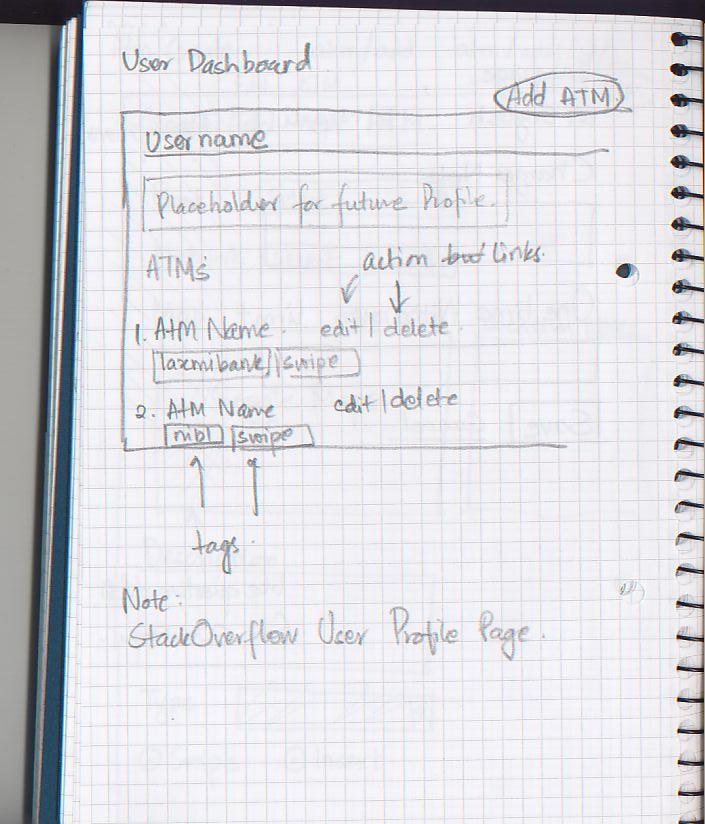 User Dashboard
Add ATM
Username
Placeholder for future Profile.
ATMs
action but links.
1. ATM Name. edit | delete.
laxmibank swipe
2. ATM Name edit | delete
nibl swipe
tags.
Note:
StackOverflow User Profile Page.